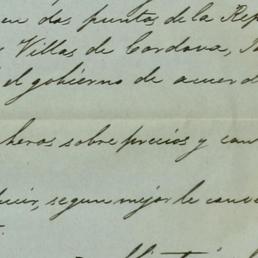 en dos puntos de la Rep
Villas de Cordova,
el gobierno de acuerd
heros sobre precios y con
ucir, segun mejor le conv